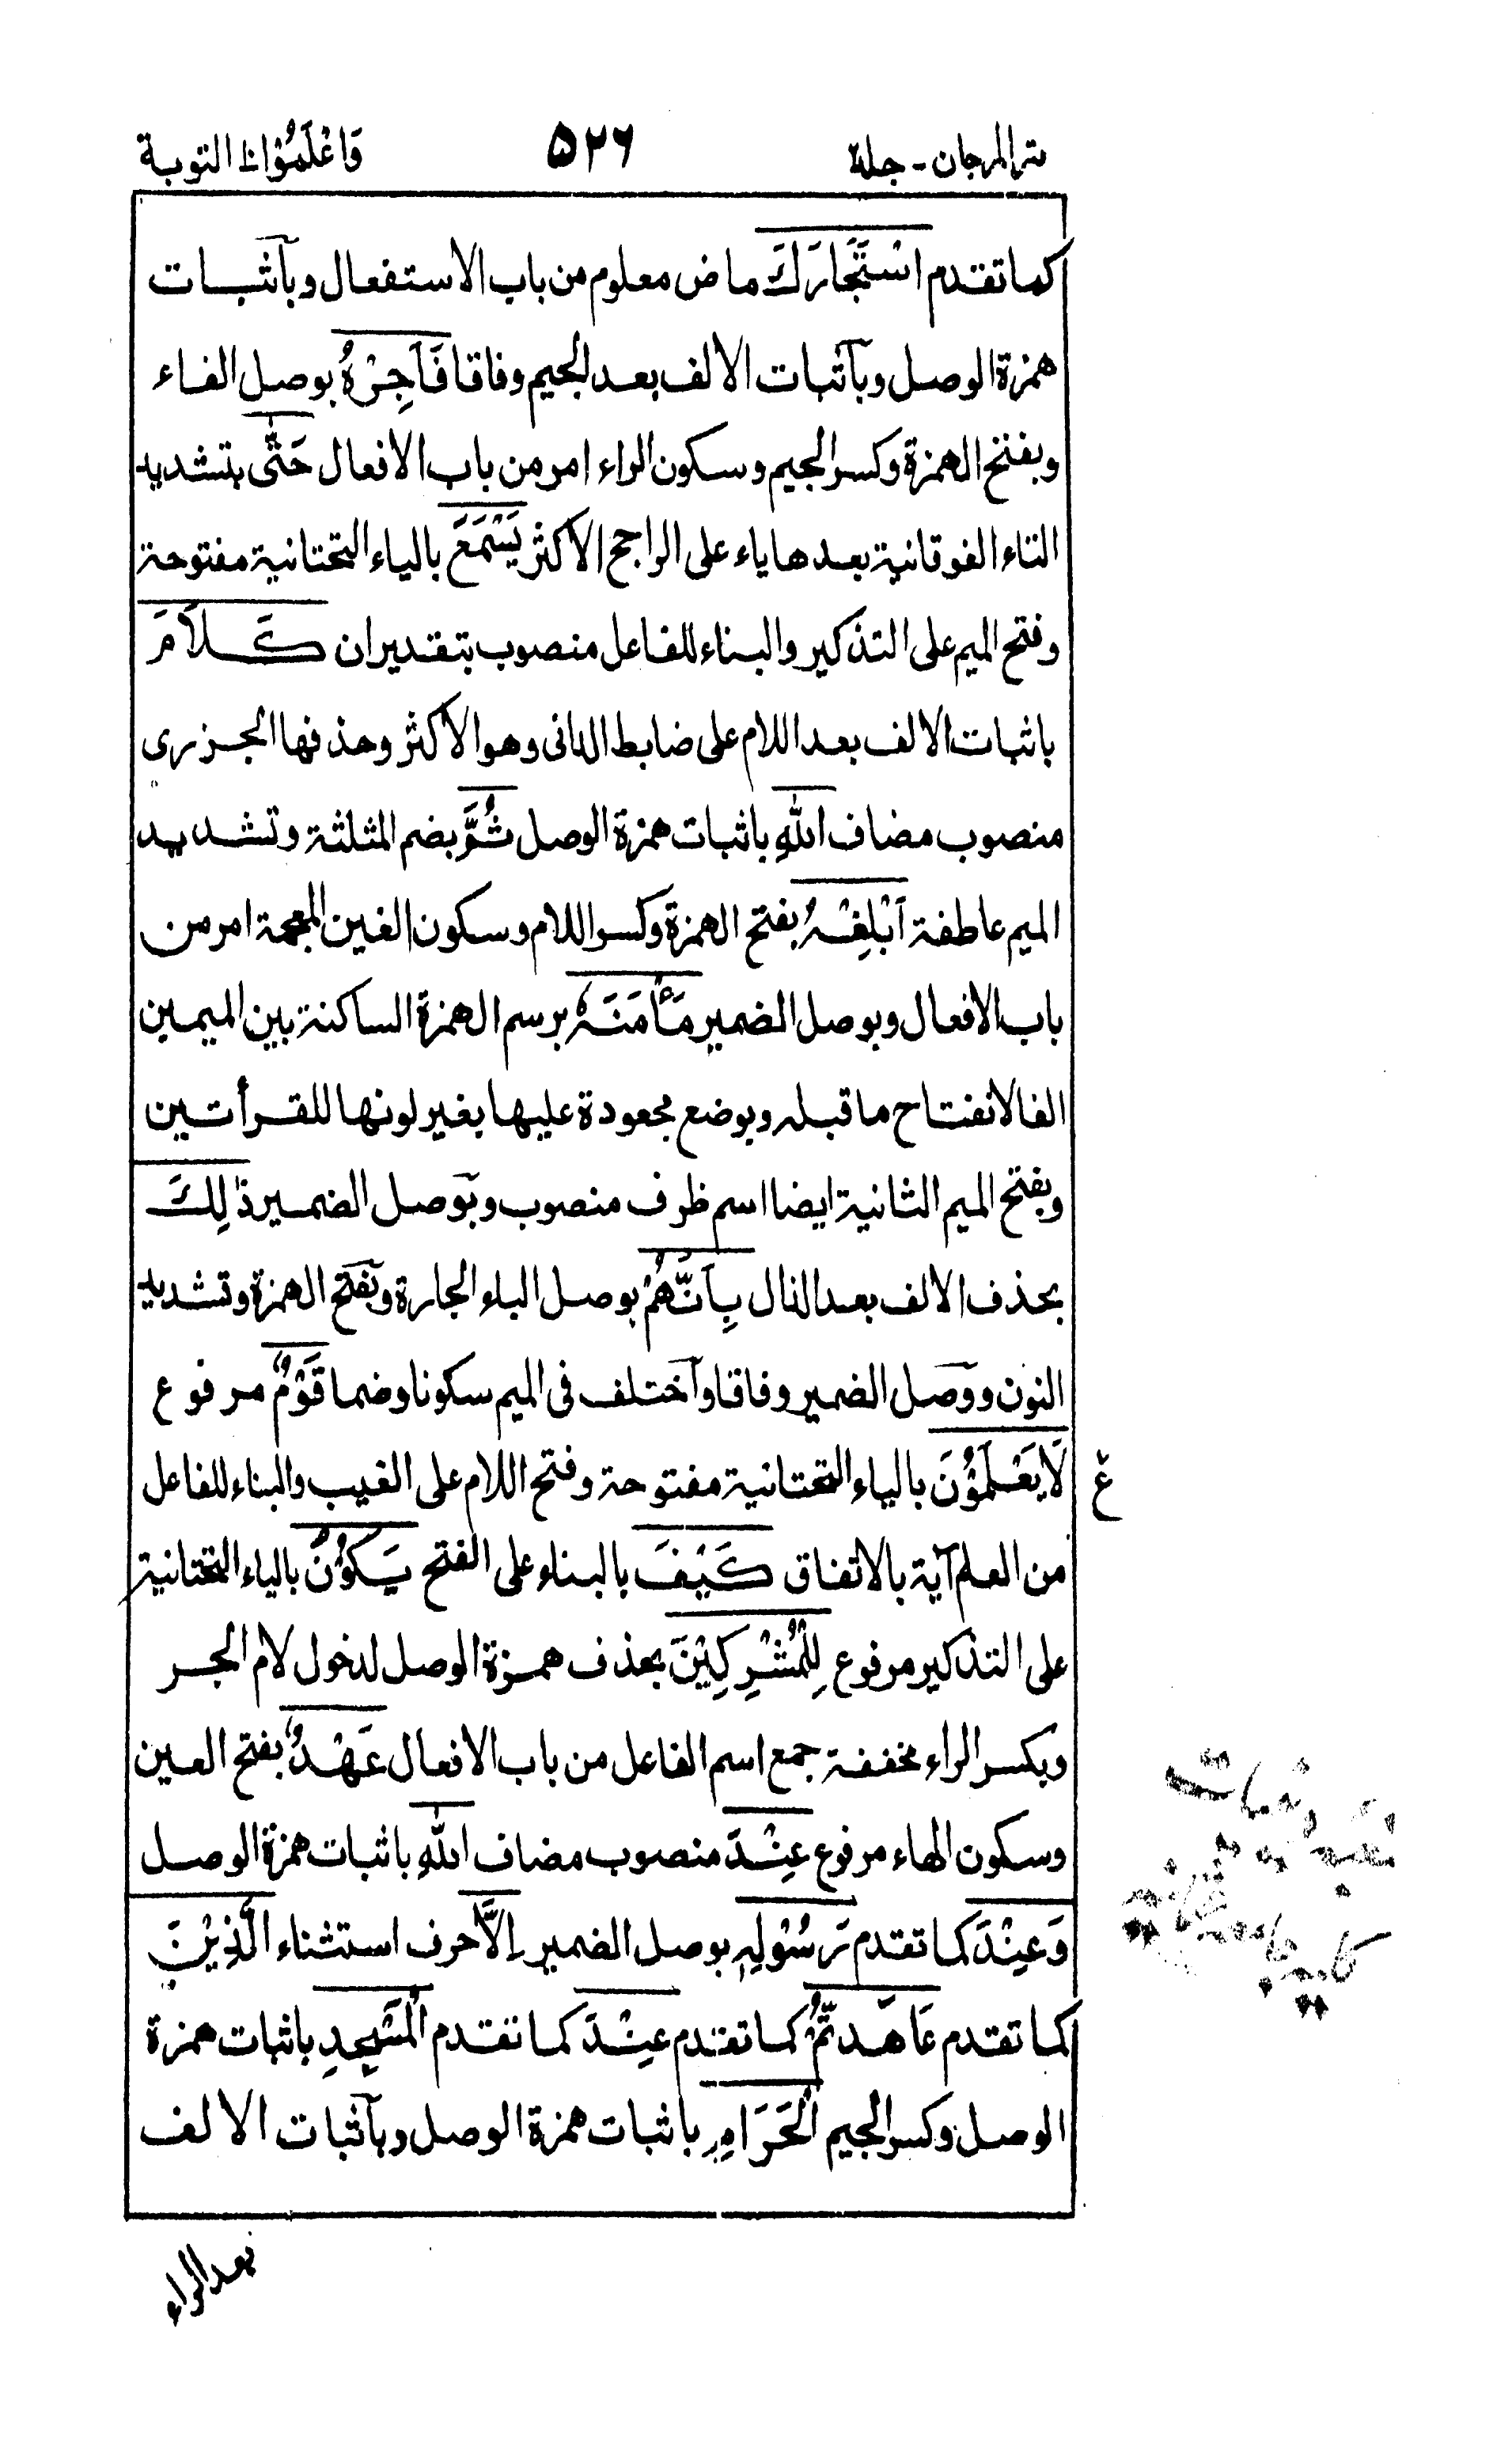 نثر المرجان - جلد ٥٢٦ وَاعْلَمُوْٓا التوبة
كما تقدم اسْتَجَارَكَ ماض معلوم من باب الاستفعال وبآثبات
همزة الوصل وبآثبات الالف بعد الجيم وفاقا فَاَجِرْهُ بوصل الفاء
وبفتح الهمزة وكسر الجيم وسكون الراء امر من باب الافعال حَتّٰى بتشديد
التاء الفوقانية بعدها ياء على الراجح الاكثر يَسْمَعَ بالياء التحتانية مفتوحة
وفتح الميم على التذكير والبناء للفاعل منصوب بتقدير ان كَلَامَ
باثبات الالف بعد اللام على ضابط الدانى وهو الاكثر وحذفها الجزرى
منصوب مضاف اللّٰهِ باثبات همزة الوصل ثُمَّ بضم المثلثة وتشديد
الميم عاطفة اَبْلِغْهُ بفتح الهمزة وكسر اللام وسكون الغين المعجمة امر من
باب الافعال وبوصل الضمير مَأْمَنَهٗ برسم الهمزة الساكنة بين الميمين
الفا لانفتاح ما قبله وبوضع مجعودة عليها بغير لونها للقرأتين
وبفتح الميم الثانية ايضا اسم ظرف منصوب وبوصل الضمير ذٰلِكَ
بحذف الالف بعد الذال بِاَنَّهُمْ بوصل الباء الجارة وبفتح الهمزة وتشديد
النون ووصل الضمير وفاقا وآختلف فى الميم سكونا وضما قَوْمٌ مرفوع
لَا يَعْلَمُوْنَ بالياء التحتانية مفتوحة وفتح اللام على الغيب والبناء للفاعل
ع
من العلم آية بالاتفاق كَيْفَ بالبناء على الفتح يَكُوْنُ بالياء التحتانية
على التذكير مرفوع لِلْمُشْرِكِيْنَ بحذف همزة الوصل لدخول لام الجر
وبكسر الراء مخففة جمع اسم الفاعل من باب الافعال عَهْدٌ بفتح العين
وسكون الهاء مرفوع عِنْدَ منصوب مضاف اللّٰهِ باثبات همزة الوصل
وَعِنْدَ كما تقدم رَسُوْلِهٖ بوصل الضمير اِلَّا حرف استثناء الَّذِيْنَ
كما تقدم عَاهَدتُّمْ كما تقدم عِنْدَ كما تقدم الْمَسْجِدِ باثبات همزة
الوصل وكسر الجيم الْحَرَامِ باثبات همزة الوصل وبآثبات الالف
بعد الراء